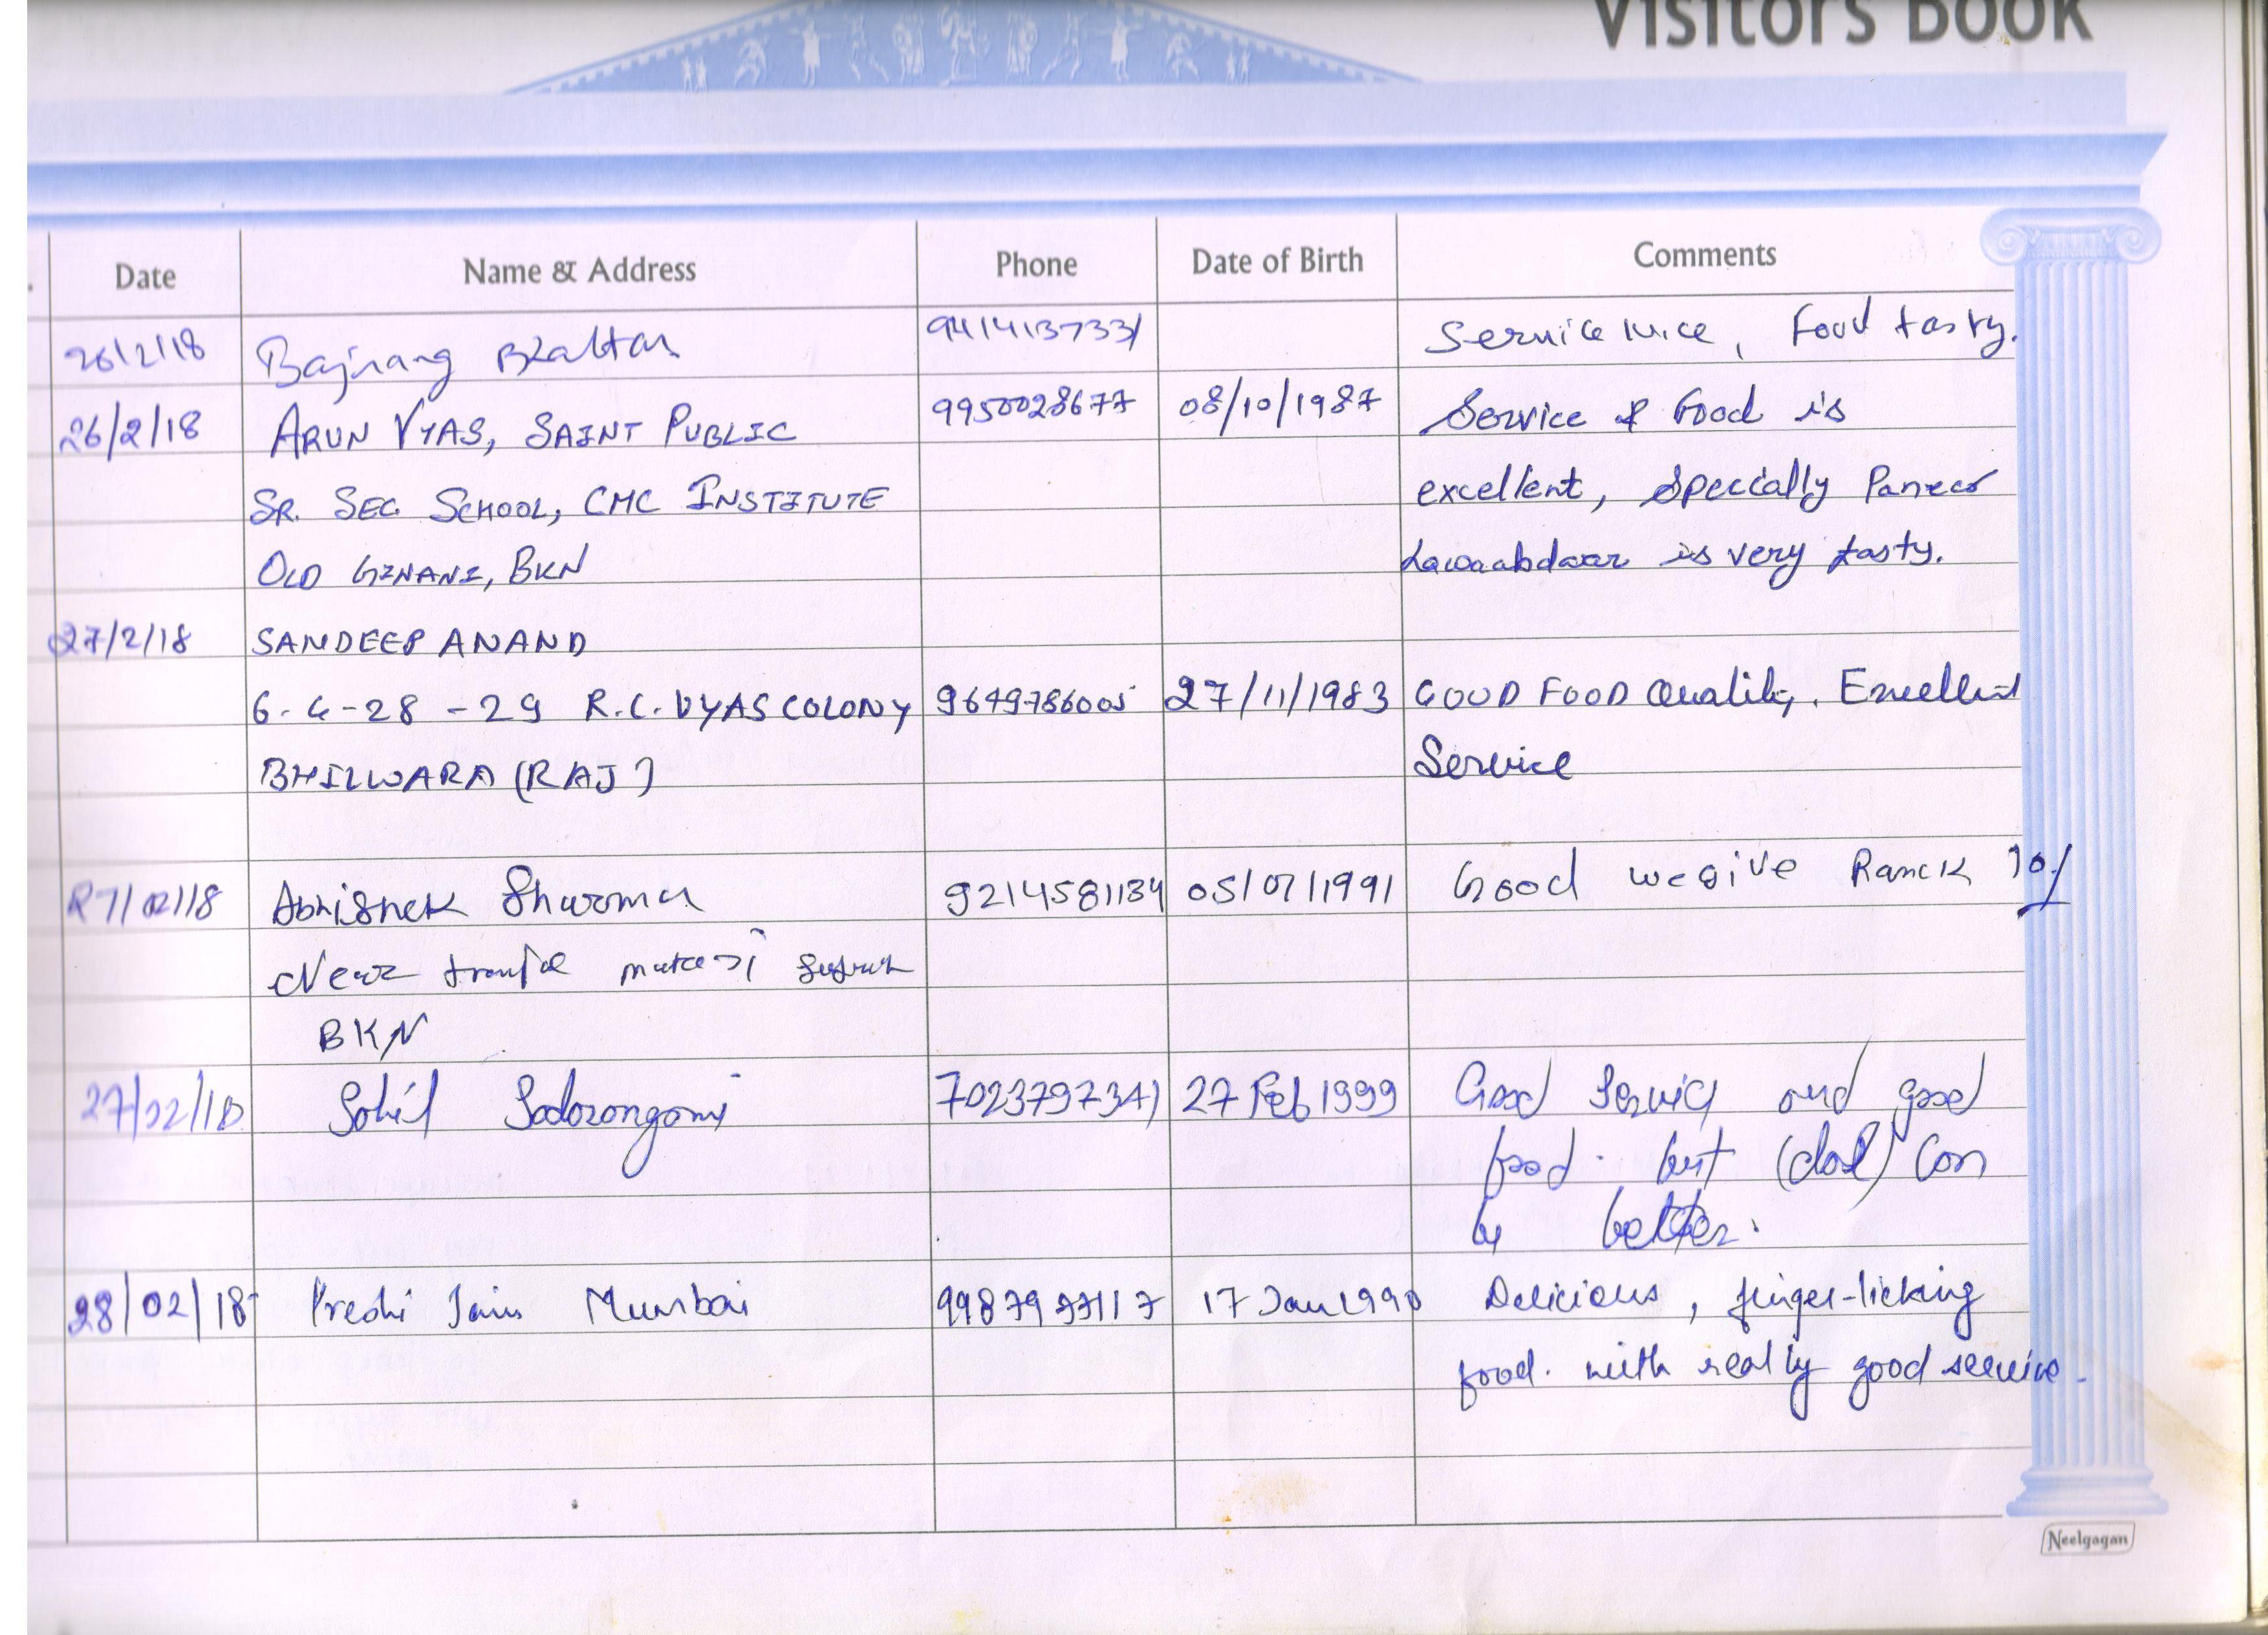 VISITORS BOOK
Date Name & Address Phone Date of Birth Comments
26/2/18 Bajrang 9414137331 Service nice, Food tasty.
26/2/18 ARUN VYAS, SAINT PUBLIC 9950028677 08/10/1987 Service & Food is
SR. SEC. SCHOOL, CMC INSTITUTE excellent, Specially Paneer
OLD GINANI, BKN Lawaabdaar is very tasty.
27/2/18 SANDEEP ANAND
6-4-28-29 R.C. VYAS COLONY 9649786005 27/11/1983 GOOD FOOD Quality. Excellent
BHILWARA (RAJ) Service
27/02/18 Abhishek Sharma 9214581134 05/07/1991 Good we give Ranck 10/
Near mataji
BKN
27/02/18 Sohil 7023797341 27 Feb 1999 Good Service and good
food. but (dal) can
be better.
28/02/18 Preshi Jain Mumbai 17 Jan 1990 Delicious, finger-licking
food. with really good service.
Neelgagan